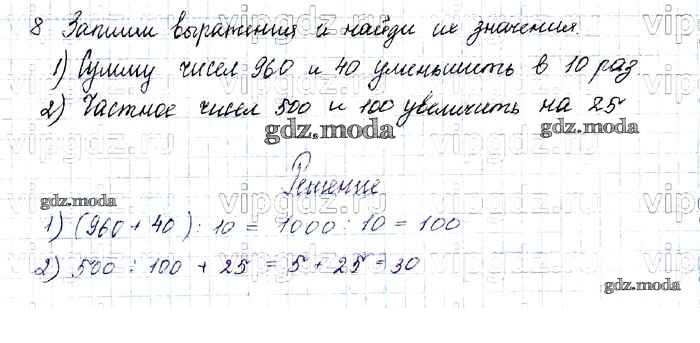 8 Запиши выражения и найди их значения.
1) Сумму чисел 960 и 40 уменьшить в 10 раз.
2) Частное чисел 500 и 100 увеличить на 25
gdz.moda gdz.moda
Решение
gdz.moda
1) (960 + 40) : 10 = 1000 : 10 = 100
2) 500 : 100 + 25 = 5 + 25 = 30
gdz.moda
vipgdz.ru